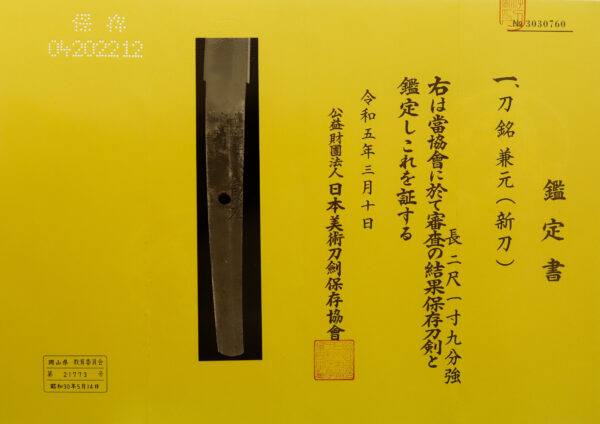 № 3030760
鑑定書
一、刀 銘 兼元(新刀)
長 二尺一寸九分強
右は當協會に於て審査の結果保存刀剣と
鑑定しこれを証する
令和五年三月十日
公益財團法人 日本美術刀劍保存協會
保存
04202212
岡山県 教育委員会
第 21773 号
昭和30年5月14日